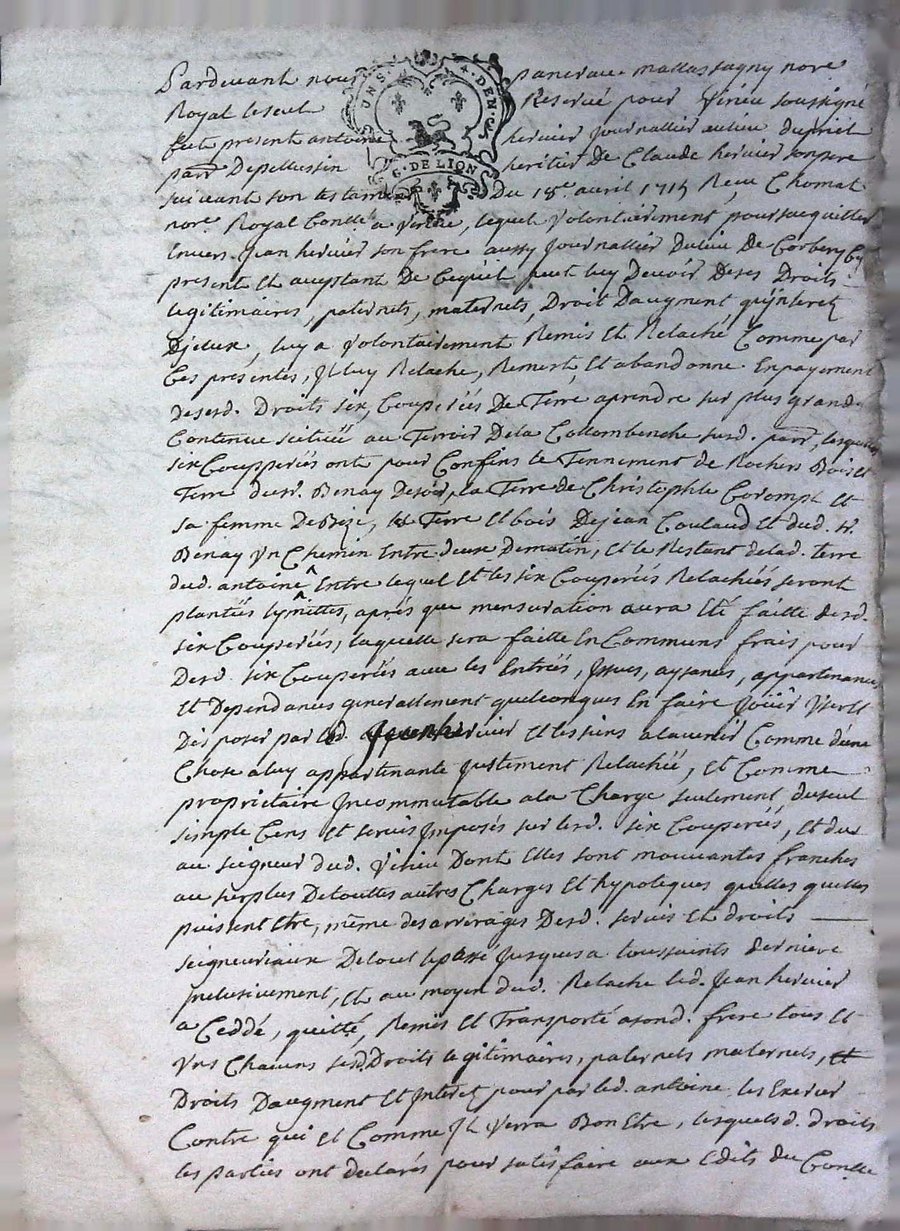 Pardevant nous pancrace mallassagny nore.
Royal le seul Reservé pour Virieu soussigné
fut present antoine hervier Journallier au lieu du priel
parr. De pellussin heritier De Claude hervier son pere
suivant son testament Du 18e. avril 1715 Receu Chomat
nore. Royal a Virieu, lequel Volontairement pour sacquitter
Envers Jean hervier son frere aussy Journallier Du lieu De Corbery Cy
present Et aceptant De Cequil peut luy Devoir De ses Droits
legitimaires, paternels, maternels, Droit Daugment quynteretz
Djceux, luy a Volontairement Remis Et Relaché Comme par
Ces presentes, Jl luy Relache, Remet, Et abandonne En payement
Desesd. Droits six Couperées De Terre a prendre sur plus grand
Contenue scituée au Terroir De la Collombenche susd. parr, lesquelles
six Coupperées ont pour Confins le Tennement de Rochers Bois Et
Terre dusr. Benay De soir, la Terre de Christophle Corompt Et
sa femme De Bize, la Terre Et bois De jean Coulaud Et dud. sr.
Benay Vn Chemin Entre deux De matin, Et le Restant de lad. terre
dud. antoine Entre lequel Et les six Couperées Relachées seront
plantées lymittes, aprés que mensuration aura Eté faitte desd.
six Couperées, laquelle sera faitte En Communs frais pour
Desd. six Couperées avec les Entrées, Jssues, aysances, appartenances
Et Dependances generallement quelconques En faire Joüir Vser Et
Disposer par led. Jean hervier Et les siens a lavenir Comme dune
Chose a luy appartenante Justement Relachée, Et Comme
proprietaire Jncommutable a la Charge seulement, du seul
simple Cens Et servis Jmposés sur lesd. six Couperées, Et du
au seigneur dud. Virieu Dont Elles sont mouvantes franches
au surplus De touttes autres Charges Et hypoteques quelles quelles
puissent Etre, même des arrirages Desd. servis Et droits
seigneuriaux De tout le passé Jusques a toussaints derniere
Jnclusivement, Et au moyen dud. Relache led. Jean hervier
a Ceddé, quitté, Remis Et Transporté a sond. frere tous Et
Vns Chacuns sesd. Droits legitimaires, paternels maternels, Et
Droits Daugment Et Jnteretz pour par led. antoine les Exercer
Contre qui Et Comme Jl Verra Bon Etre, lesquels d. droits
les parties ont declarés pour satisfaire aux Edits du Con